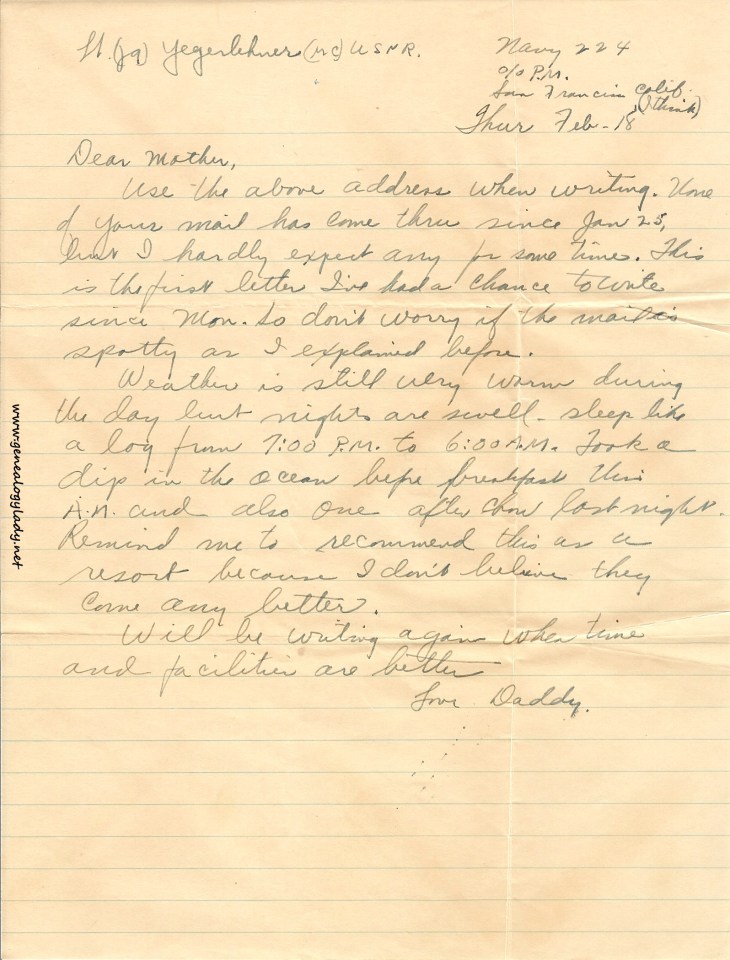 Lt. (jg) Yegerlehner (MC) USNR.
Navy 224
c/o P.M.
San Francisco Calif.
(I think)
Thur Feb-18
Dear Mother,
Use the above address when writing. None
of your mail has come thru since Jan 25,
but I hardly expect any for some time. This
is the first letter I've had a chance to write
since Mon. So don't worry if the mail is
spotty as I explained before.
Weather is still very warm during
the day but nights are swell - sleep like
a log from 7:00 P.M. to 6:00 A.M. Took a
dip in the ocean before breakfast this
A.M. and also one after chow last night.
Remind me to recommend this as a
resort because I don't believe they
come any better.
Will be writing again when time
and facilities are better
Love Daddy.
www.genealogylady.net